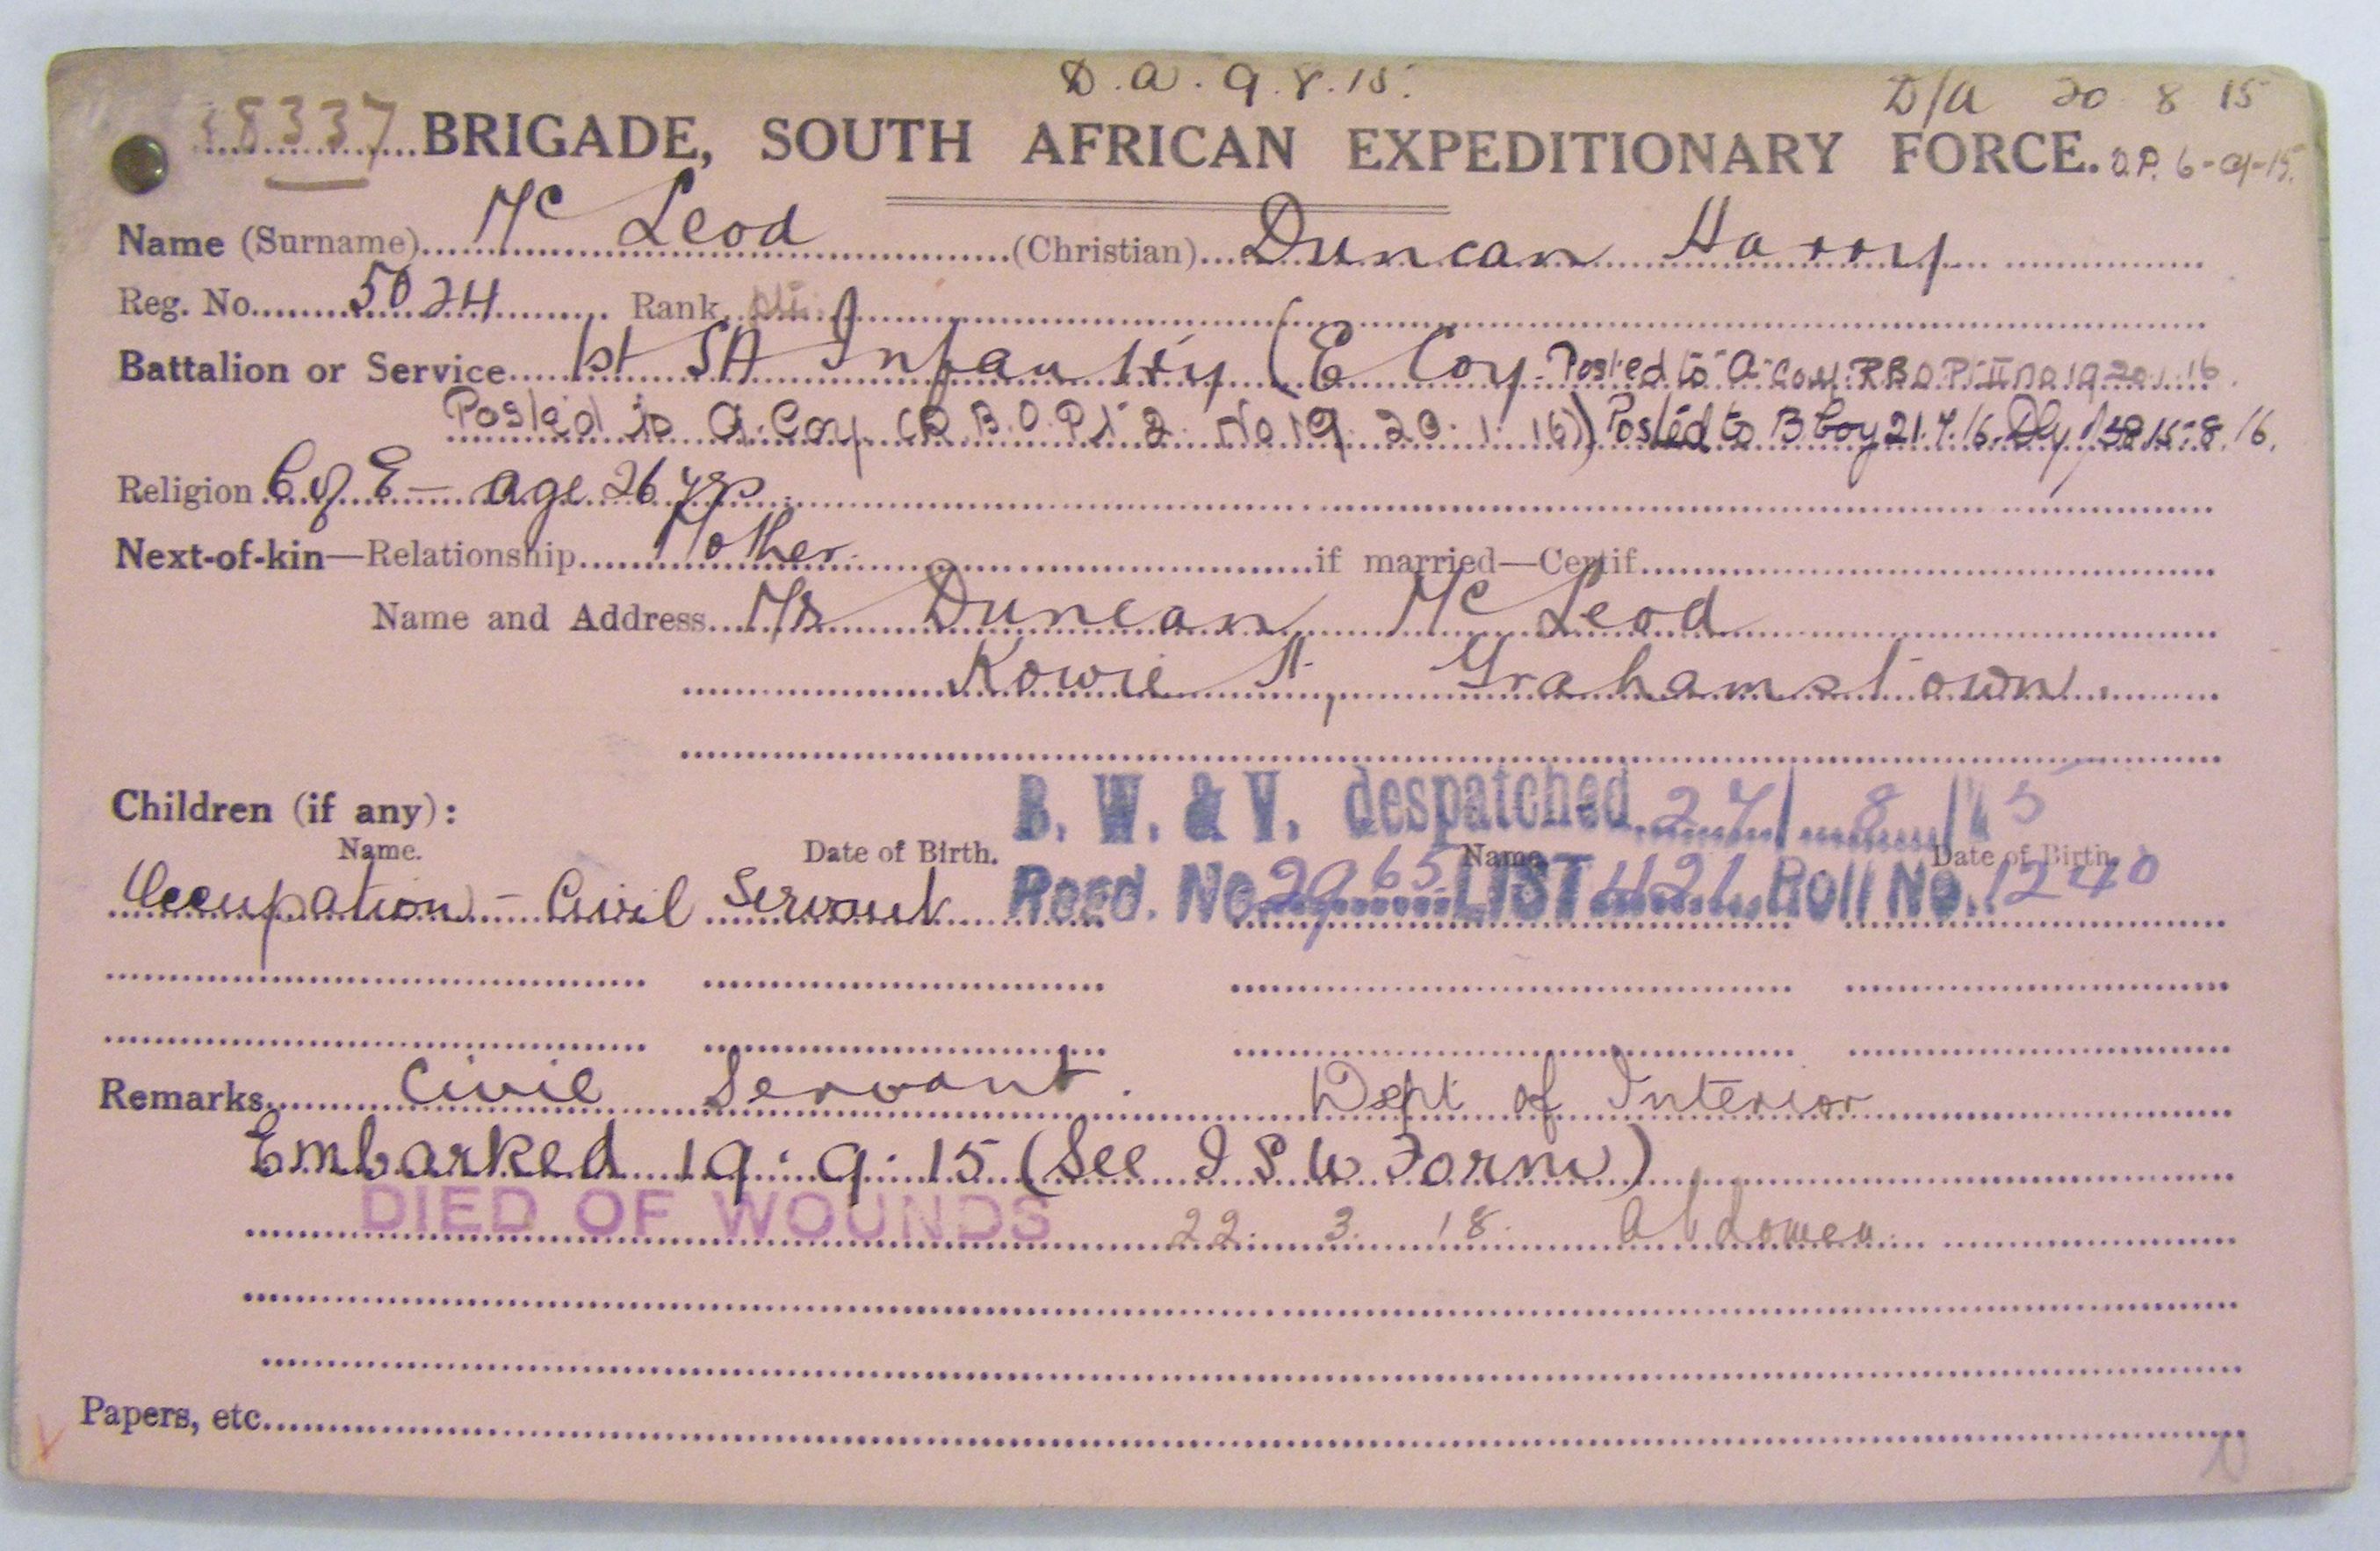 D.A. 9.8.15.
D/A 20 8 15
18337 BRIGADE, SOUTH AFRICAN EXPEDITIONARY FORCE. D.P. 6-9-15.
Name (Surname) Mc Leod (Christian) Duncan Harry
Reg. No. 5024 Rank
Battalion or Service 1st SA Infantry (E Coy. Posted to "A" Coy. RBO Pt II No 19 20.1.16.
Posted to A. Coy (R.B.O. Pt 2. No 19. 20.1.16) Posted to B Coy 21.7.16. 15.8.16.
Religion C of E — age 26 yrs.
Next-of-kin—Relationship Mother. if married—Certif.
Name and Address Mrs Duncan Mc Leod
Kowie St, Grahamstown.
Children (if any):
B. W. & V. despatched 27/8/
Name. Date of Birth. Name. Date of Birth.
Occupation - Civil Servant Recd. No. 2965 LIST 421 Roll No. 1240
Remarks Civil Servant. Dept of Interior
Embarked 19.9.15 (See I S W Form)
DIED OF WOUNDS 22. 3. 18. Abdomen.
Papers, etc.